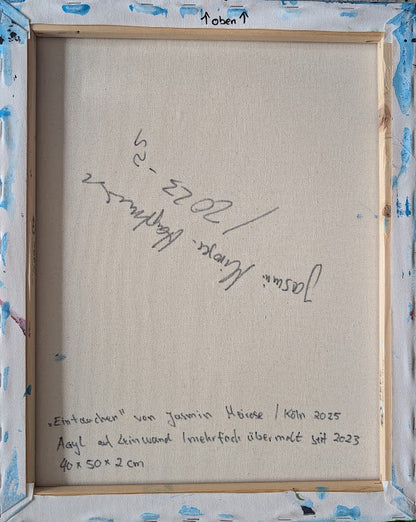 ↑ oben ↑
/2023 - 25
Jasmin Meirose-
„Eintauchen" von Jasmin Meirose / Köln 2025
Acryl auf Leinwand / mehrfach übermalt seit 2023
40 x 50 x 2 cm